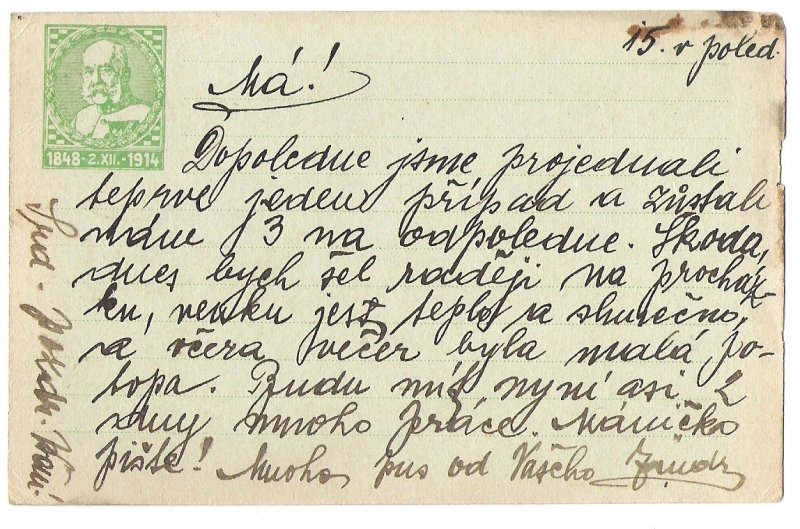 15. v poled.
1848 - 2. XII. - 1914
Má!
Dopoledne jsme projednali
teprve jeden případ a zůstali
nám 3 na odpoledne. Škoda,
dnes bych šel raději na procház-
ku, venku jest teplo a slunečno,
a včera večer byla malá po-
topa. Budu mít nyní asi 2
dny mnoho práce. Mánička
pište! Mnoho pus od Vašeho
Srd. pozdr.